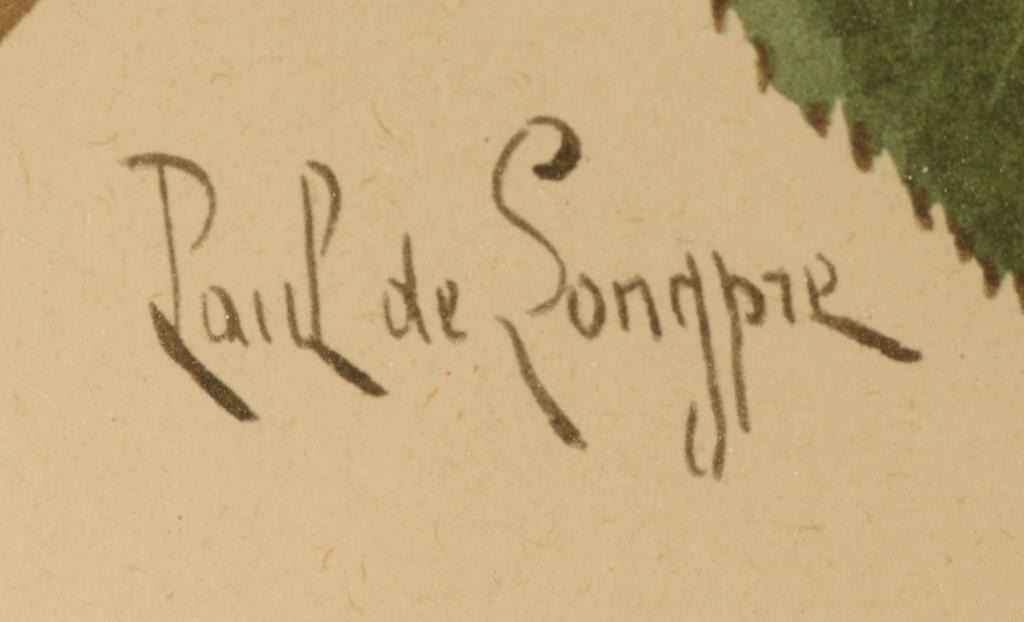 Paul de Longpre